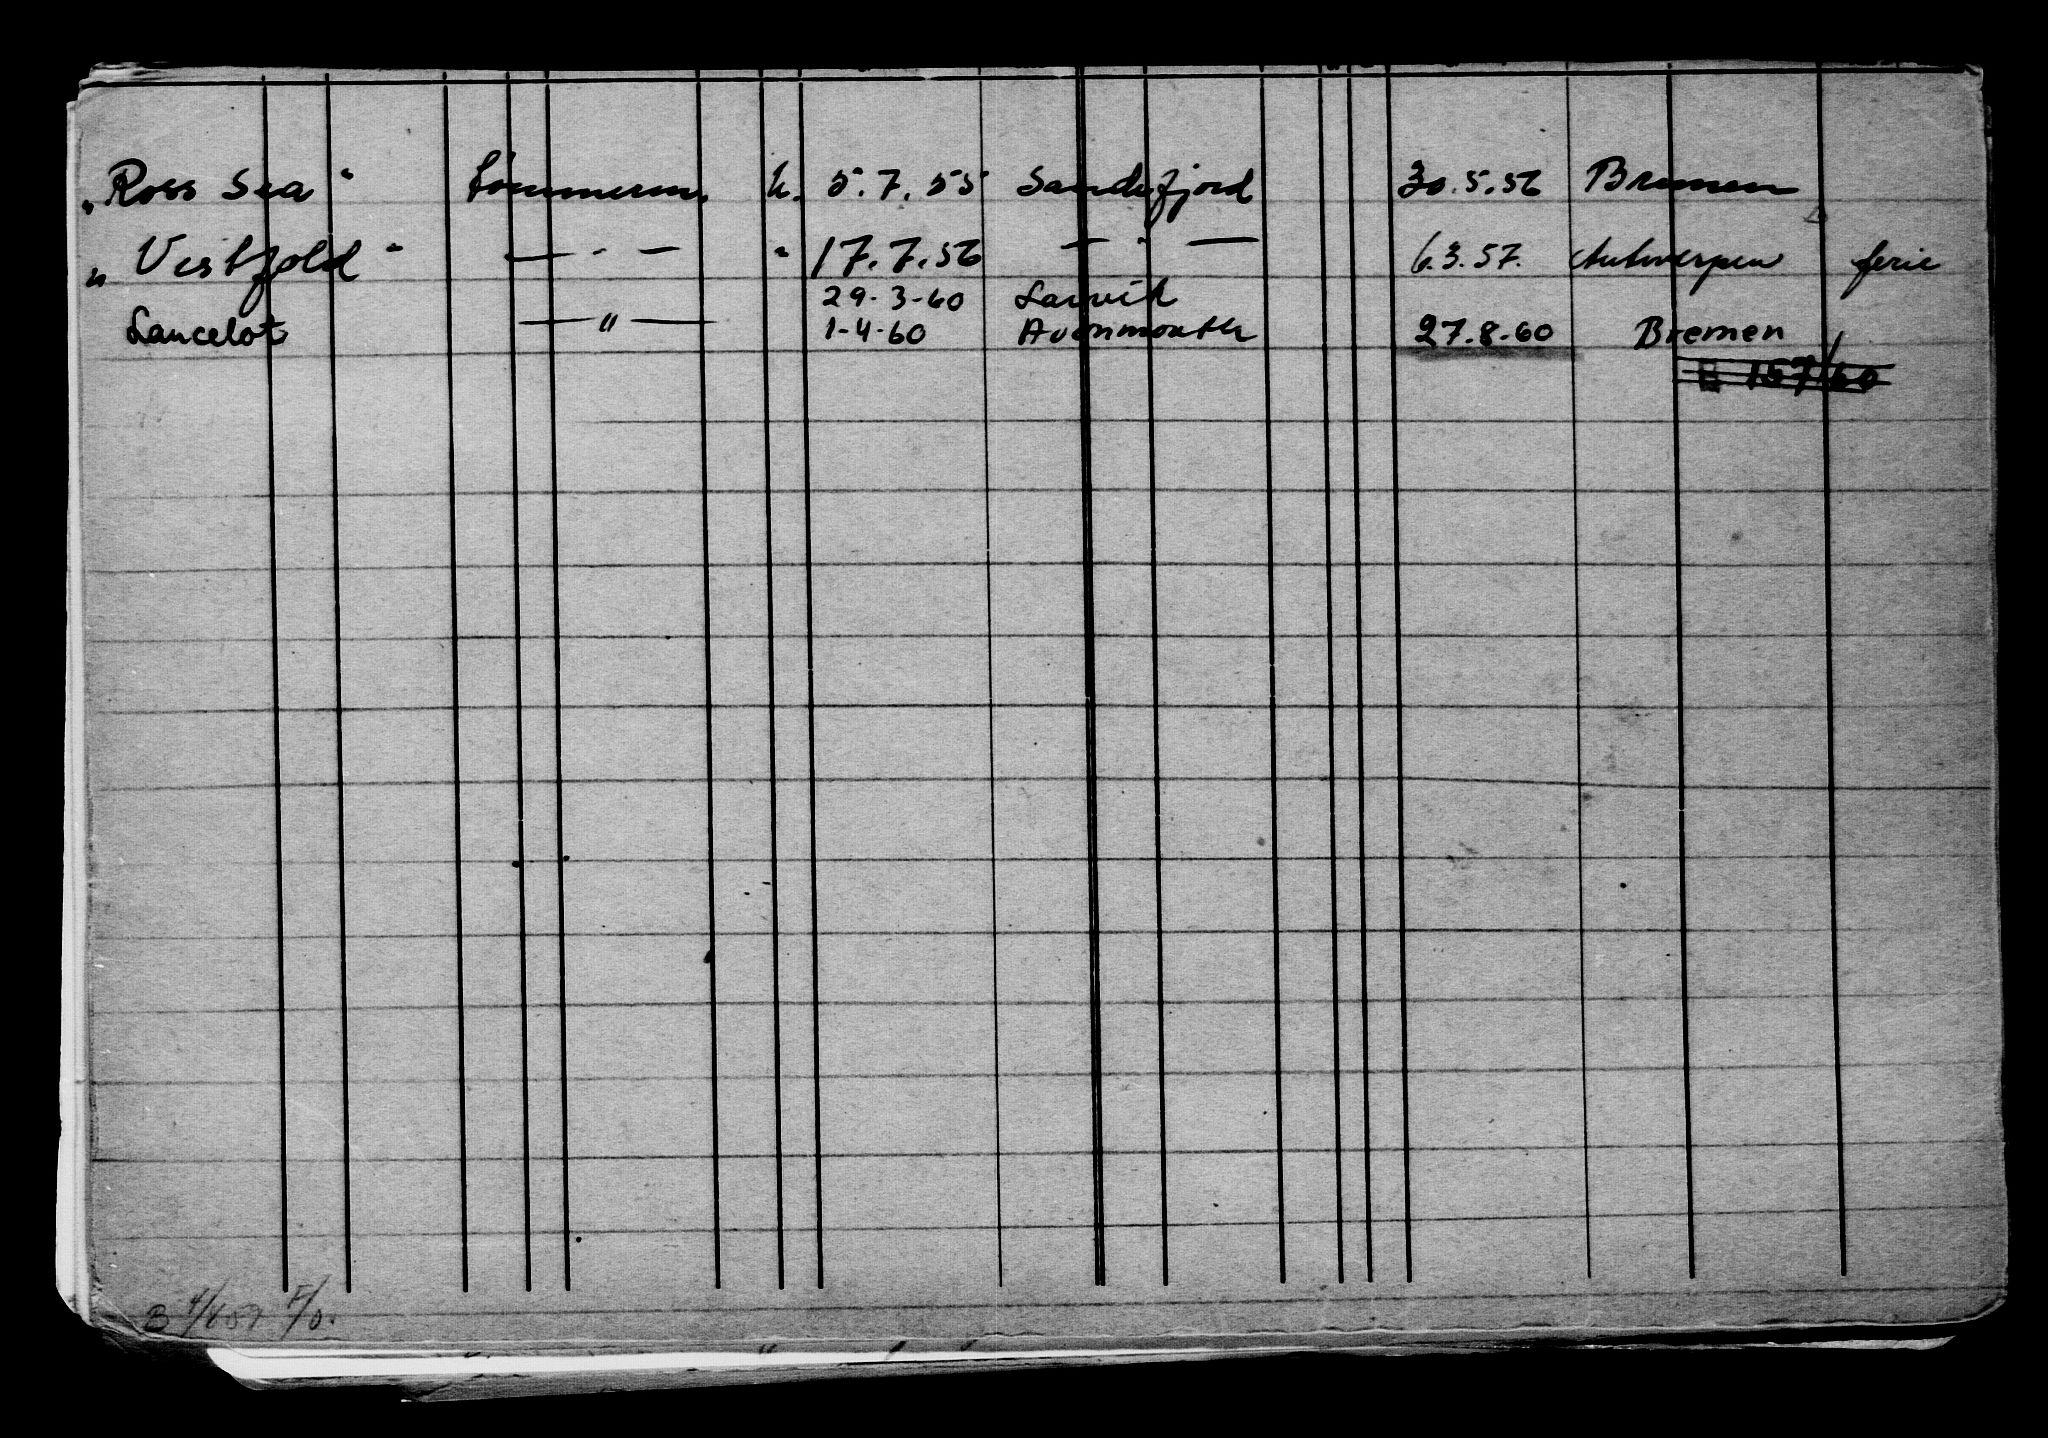 „Ross Sea" Tømmerm. h. 5.7.55 Sandefjord 30.5.56 Bremen
„Vestfold" — " — " 17.7.56 — " — 6.3.57. Antwerpen ferie
29-3-60 Larvik
Lancelot — " — 1-4-60 Avonmouth 27.8.60 Bremen
157/60
B 4/4 57